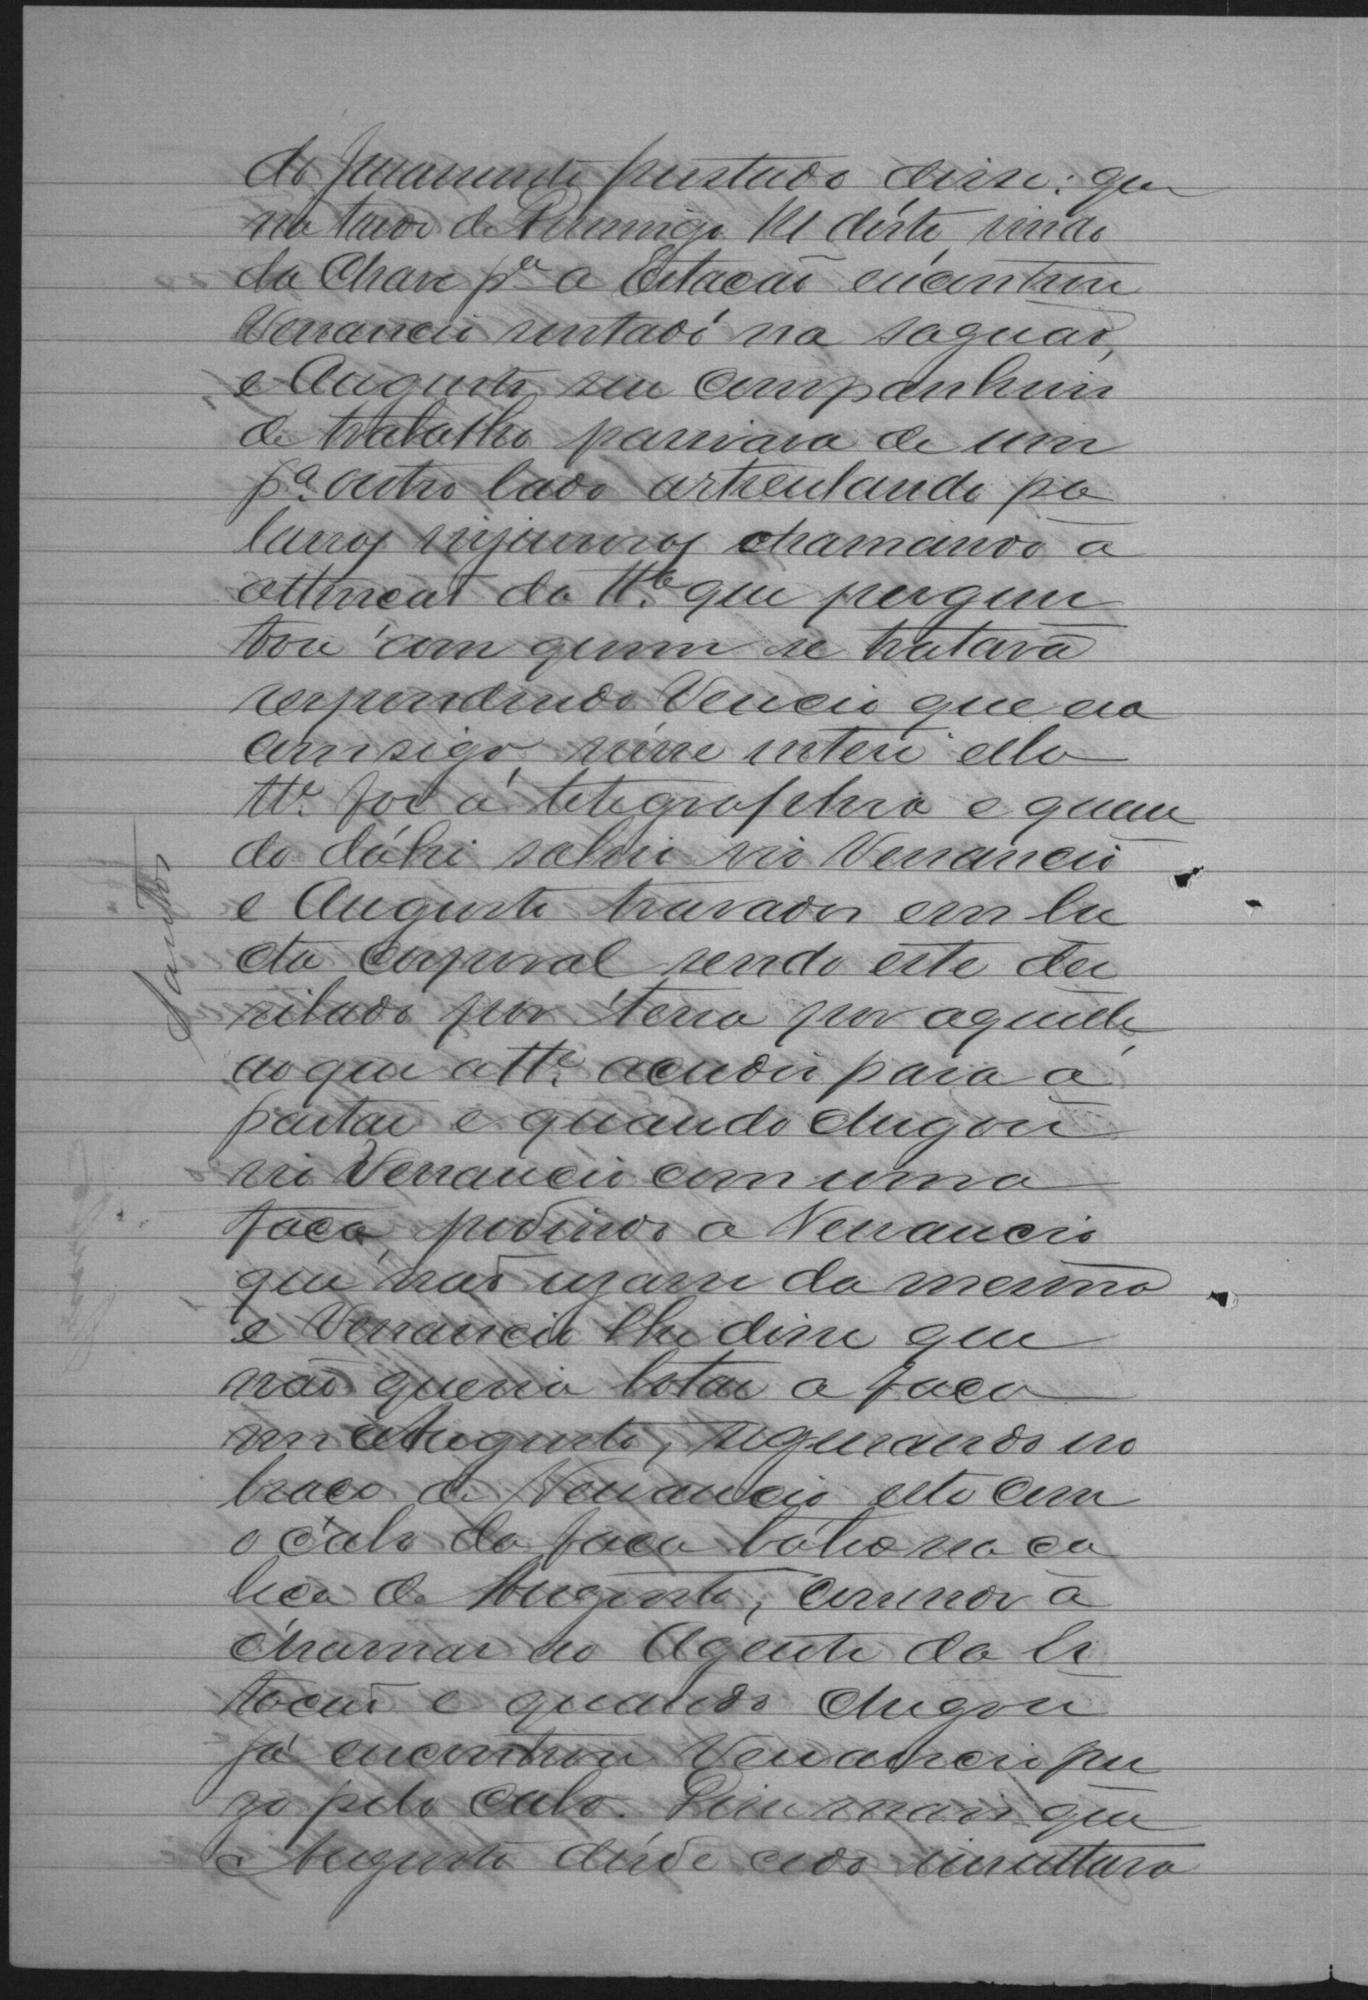 do juramento prestado disse: que
na tarde de Domingo 11 déste vindo
da Chave pª a Estacaõ encontrou
Venancio sentado na saguaõ,
e Augusto seu companheiro
de trabalho passiava de um
pª outro lado articulando pa
lavras injuriosas chamando a
attencaõ da ttª que pergun
tou com quem se tratava
respondendo Vencio que era
comsigo, nisse interi ella
ttª foi á telegraphia e quan
do dáhi sahio vio Venancio
e Augusto travados em lu
cta corporal sendo este dei
xitado por terra por aquelle,
ao que a ttª acudio para a
partar e quando chegou
vio Venancio com uma
faca, pedindo a Venancio
que naõ uzasse da mesma
e Venancio lhe disse que
naõ queria botar a faca
em Augusto, segurando no
braco de Venancio este com
o cabo da faca bateo na ca
beca de Augusto, correndo a
chamar ao Agente da Es
tacaõ e quando chegou
já encontrou Venancio pre
zo pelo Cabo. Disse mais que
Augusto désde cedo insultava
Santos